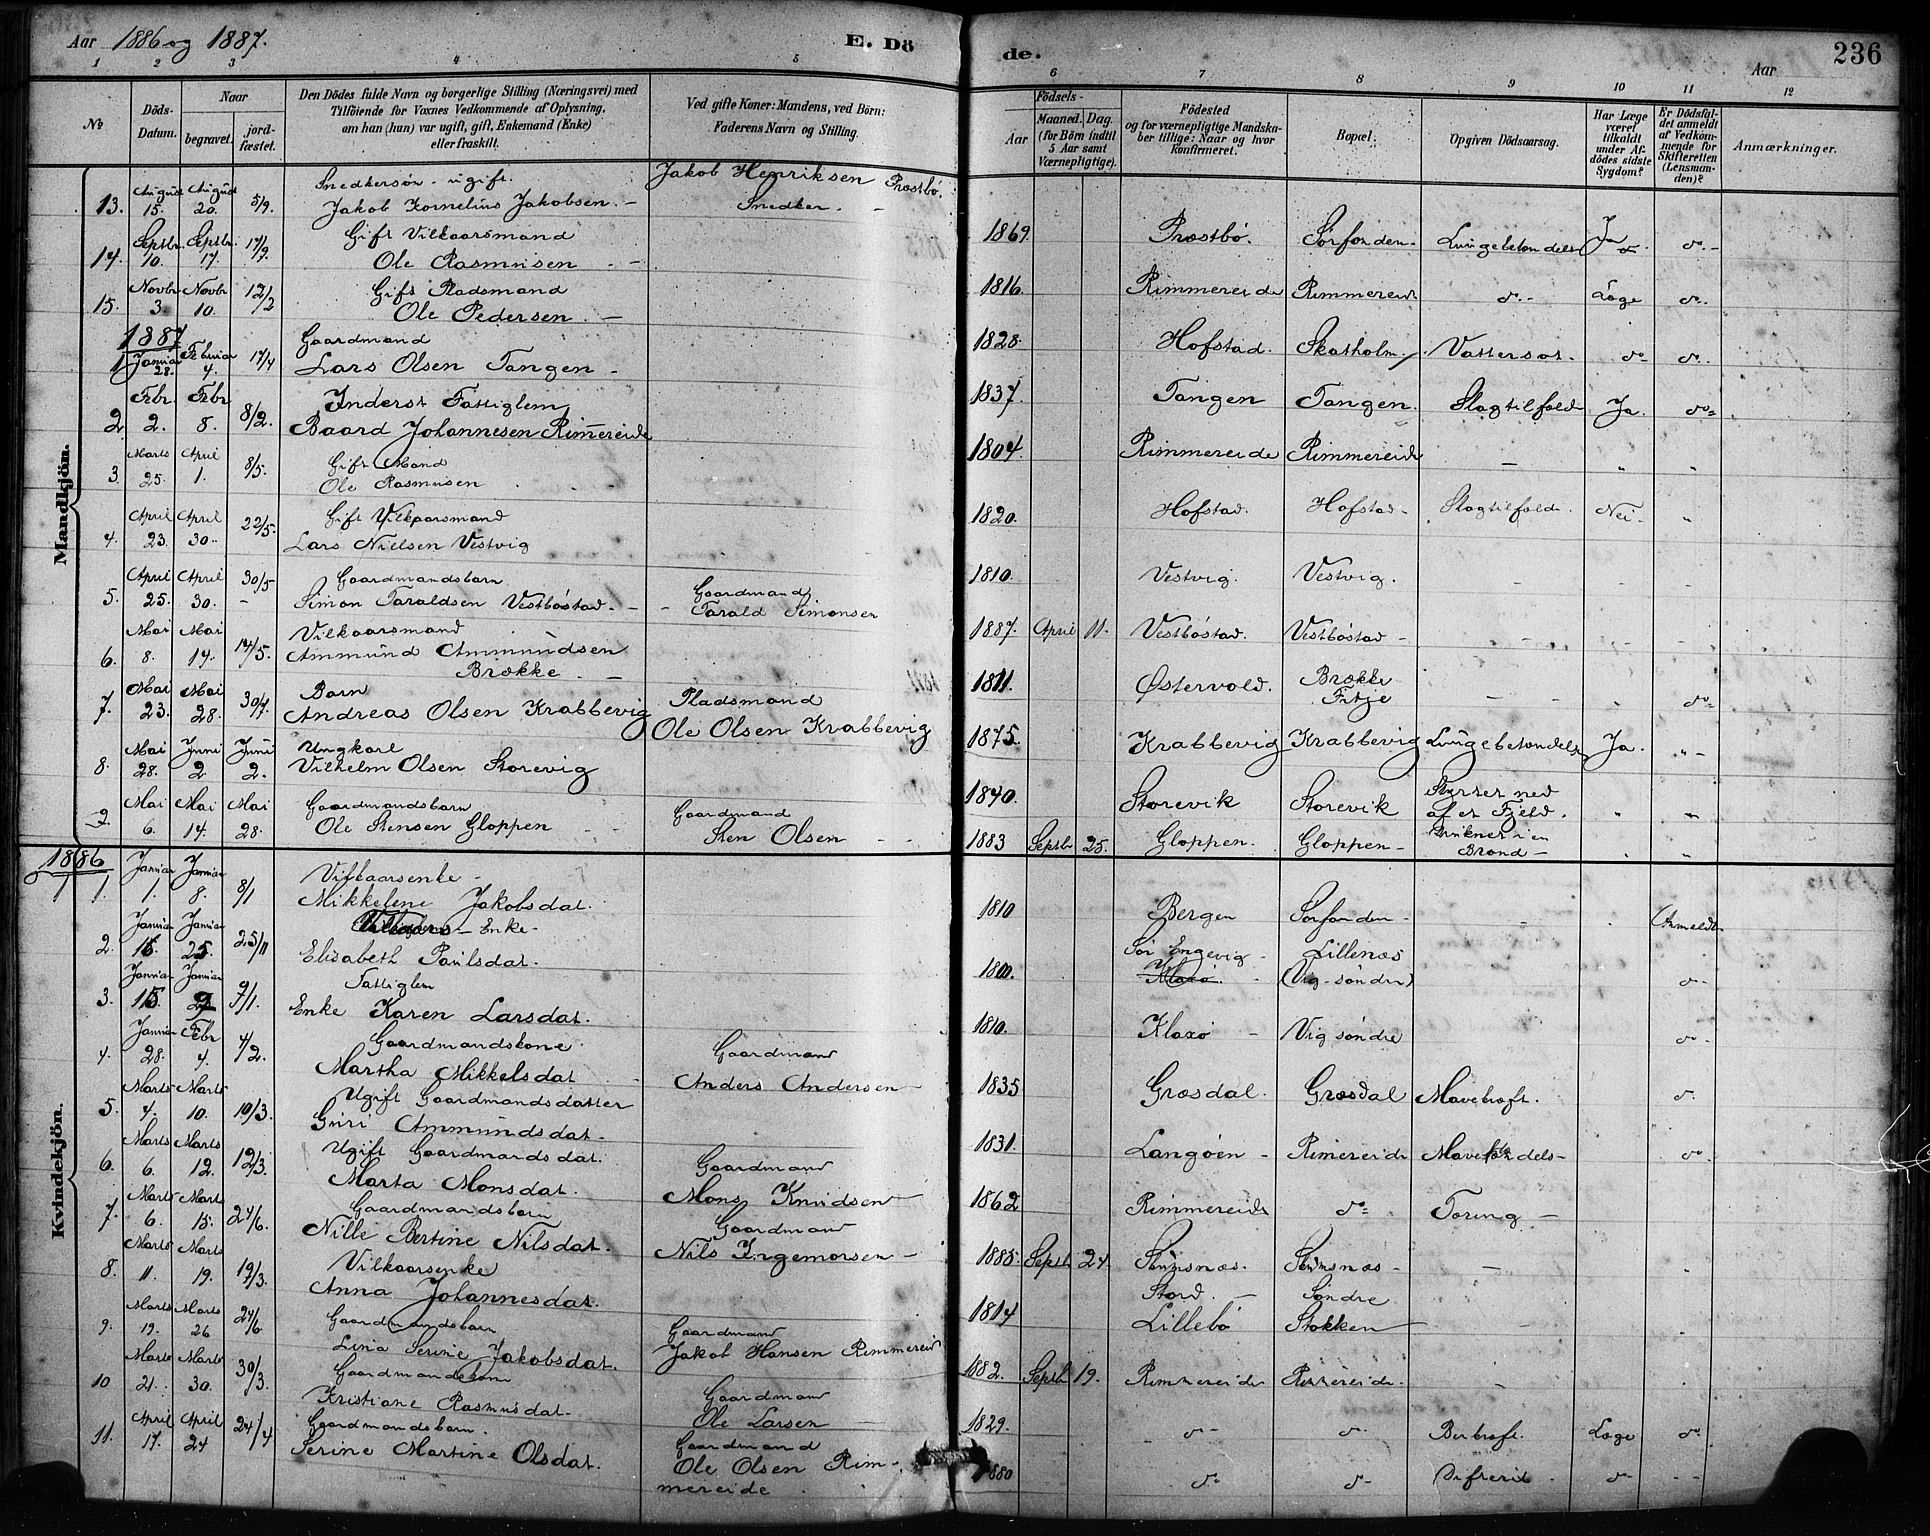 Aar 1886 og 1887.
E. Dö
de.
Aar
236
1 2 3 4 5 6 7 8 9 10 11 12
№
Döds-
Datum.
Naar
begravet.
jord-
fæstet.
Den Dödes fulde Navn og borgerlige Stilling (Næringsvei) med
Tilföiende for Voxnes Vedkommende af Oplysning,
om han (hun) var ugift, gift, Enkemand (Enke)
eller fraskilt.
Ved gifte Koner: Mandens, ved Börn:
Faderens Navn og Stilling.
Födsels-
Aar
Maaned. Dag.
(for Börn indtil
5 Aar samt
Værnepligtige).
Födested
og for værnepligtige Mandska-
ber tillige: Naar og hvor
konfirmeret.
Bopæl.
Opgiven Dödsaarsag.
Har Læge
været
tilkaldt
under Af-
dödes sidste
Sygdom?
Er Dödsfal-
det anmeldt
af Vedkom-
mende for
Skifteretten
(Lensman-
den)?
Anmærkninger.
Mandkjön.
13. August 15. August 20. 5/9. Snedkersøn - ugift. Jakob Kornelius Jakobsen. - Jakob Henriksen Præstbø. Snedker. - 1869. Præstbø. Sørfonden. Lungebetændelse Ja do.-
14. Septbr. 10. Septbr. 17. 17/9. Gift Vilkaarsmand Ole Rasmusen - 1816. Rimmereide Rimmereide do.- Læge do.
15. Novbr 3. Novbr 10. 12/2 Gift Pladsmand Ole Pedersen. - 1828. Hofstad. Skatholm Vattersot. do- do.
1887
1 Januar 28. Februar 4. 17/4 Gaardmand Lars Olsen Tangen - 1837. Tangen Tangen. Slagtilfæld Ja. do=
2. Febr. 2. Febr 8. 8/2. Inderst Fattiglem Baard Johannesen Rimereide 1804. Rimmereide Rimmereide - " "
3. Marts 25. April 1. 8/5. Gift Mand Ole Rasmusen 1820. Hofstad. Hofstad- Slagtilfæld. Nei- "
4. April 23. April 30. 22/5. Gift Vilkaarsmand Lars Nielsen Vestvig 1810. Vestvig. Vestvig. - - -
5. April 25. April 30. 30/5 - Gaardmandsbarn Simon Taraldsen Vestbøstad. - Gaardmand Tarald Simonsen 1887. April 11. Vestbøstad. Vestbøstad - - - -
6. Mai 8. Mai 14. 14/5. Vilkaarsmand Ammund Ammundsen Brække. - 1811. Østervold. Brække Fitje - - do=
7. Mai 23. Mai 28. 30/7. Barn Andreas Olsen Krabbevig Pladsmand Ole Olsen Krabbevig 1875. Krabbevig Krabbevig Lungebetændelse Ja. " -
8. Mai 28. Juni 2 Juni 2. Ungkarl Vilhelm Olsen Storevig 1840. Storevik Storevik Styrtet ned af et Fjeld. " "
9. Mai 6. Mai 14. Mai 28. Gaardmandsbarn Ole Stensen Gloppen - Gaardmand Sten Olsen - - 1883 Septb 25. Gloppen. Gloppen- Druknet i en Brønd - " "
1886
Kvindekjön.
1. Januar 1. Januar 8. 8/1 Vilkaarsenke - Mikkelene Jakobsdat. 1810 Bergen Sørfonden - - Anmeldt.
2. Januar 16. Januar 25. 25/11 Enke - Elisabeth Paulsdat. Sør Engevig Lillenæs (Vig-søndre) do-
3. Januar 15 Januar 9/1. Fattiglem Enke Karen Larsdat. 1810. Klaxø - Vig søndre do-
4. Januar 28. Febr 4. 4/2. Gaardmandskone. Martha Mikkelsdat - Gaardmand Anders Andersen - 1835 Græsdal. Græsdal Mavekræft. do.
5. Marts 4. Marts 10. 10/3. Ugift Gaardmandsdatter Guri Ammundsdat. 1831. Langøen - Rimereide do-
6. Marts 6. Marts 12. 12/3. Ugift Gaardmandsdat. Marta Monsdat. Gaardmand Mons Knudsen 1862 Rimmereide do= Tæring -
7. Marts 6. Marts 15. 24/6. Gaardmandsbarn Nille Bertine Nilsdat. Gaardmand Nils Ingemorsen - 1885. Septb 24. -
8. Marts 11. Marts 19. 19/3. Vilkaarsenke Anna Johannesdat. 1814 Stord. - Lillebø Søndre Stokken -
9. Marts 19. Marts 26 24/6 Gaardmandsbarn Lina Serine Jakobsdat. Gaardmand Jakob Hansen Rimmereid 1882. Septb 19. Rimmereide Rimereide. -
10 Marts 21. Marts 30. 30/3. Gaardmandskone Kristiane Rasmusdat. Gaardmand Ole Larsen - 1829. do- do. Læge do.
11. April 17. April 24 24/4 Gaardmandsbarn. Serine Martine Olsdat. Gaardmand Ole Olsen Rim- mereide. 1880 do- do- Difterit. do- - -